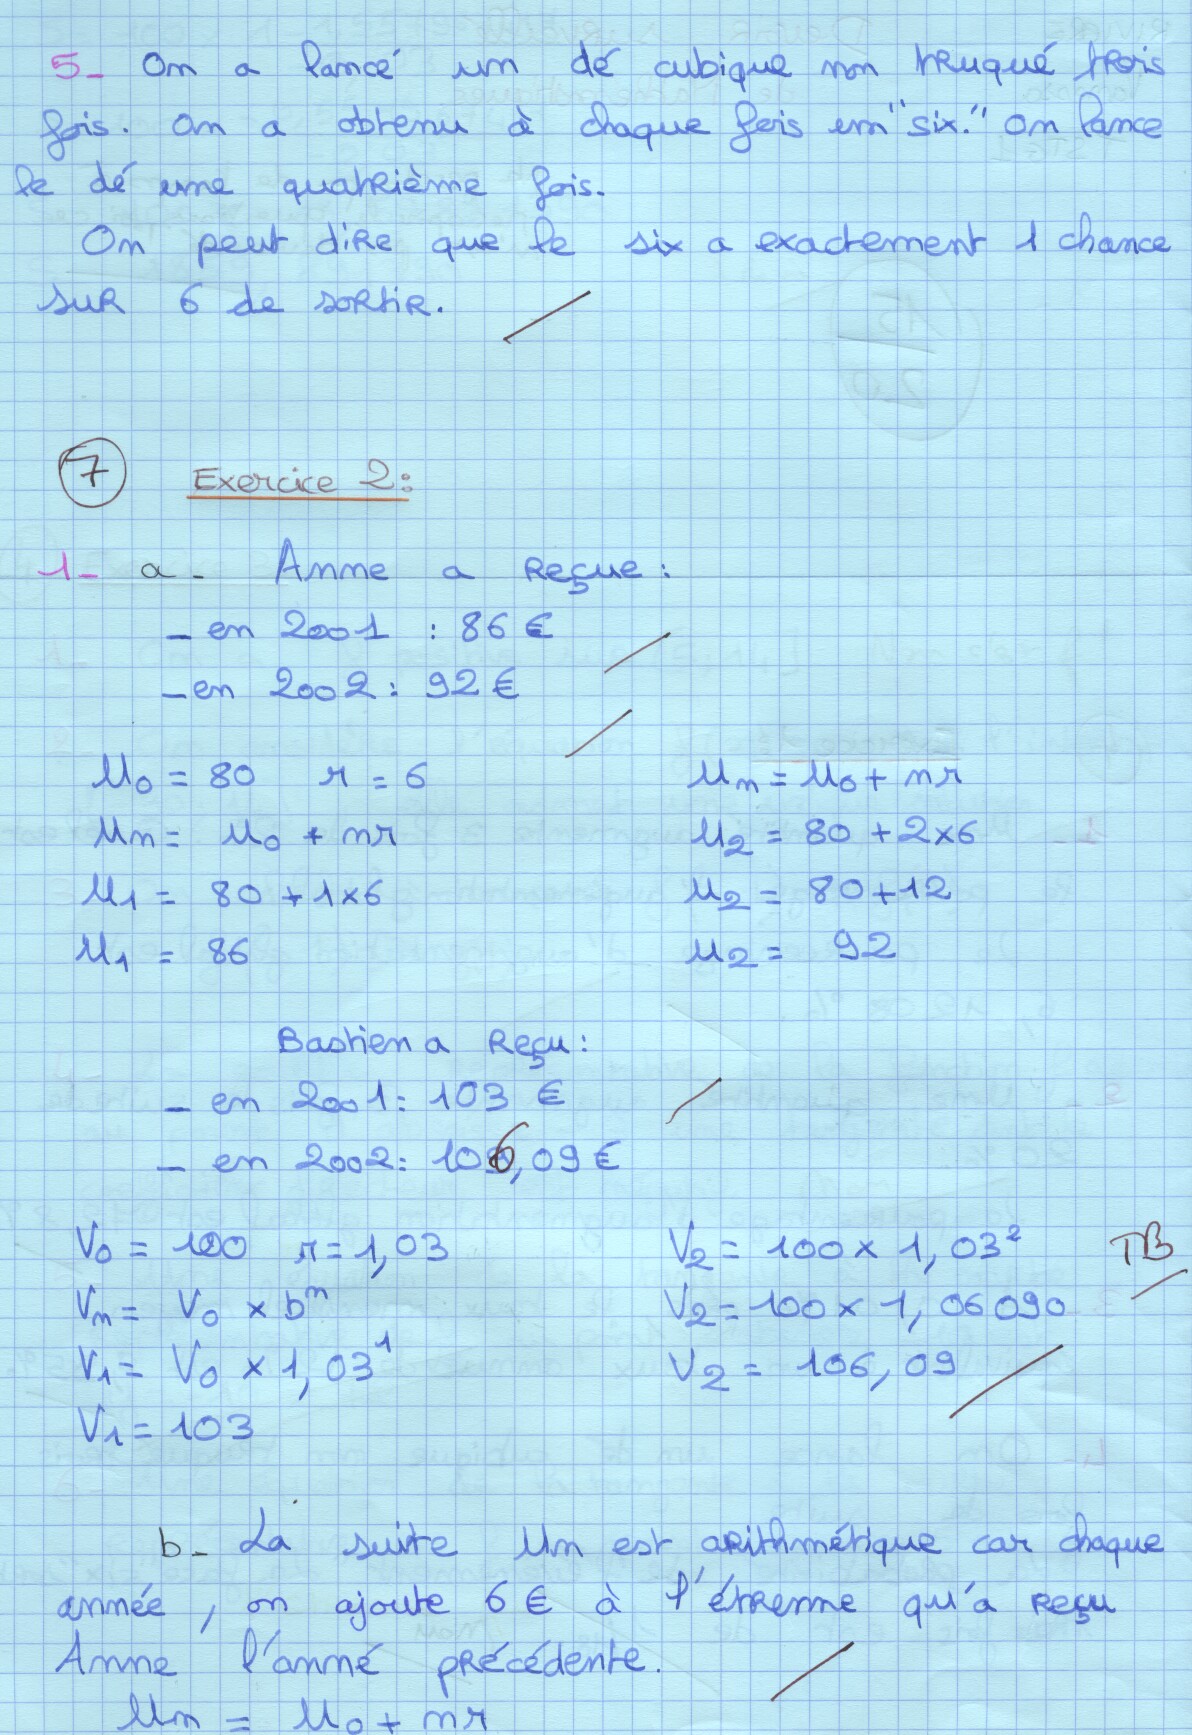 5- On a lancé un dé cubique non truqué trois
fois. On a obtenu à chaque fois un "six." On lance
le dé une quatrième fois.
On peut dire que le six a exactement 1 chance
sur 6 de sortir.
7 Exercice 2:
1- a- Anne a reçue :
- en 2001 : 86 €
- en 2002 : 92 €
U0 = 80 r = 6
Un = U0 + nr
U1 = 80 + 1×6
U1 = 86
Un = U0 + nr
U2 = 80 + 2×6
U2 = 80+12
U2 = 92
Bastien a reçu :
- en 2001 : 103 €
- en 2002 : 106,09 €
V0 = 100 r = 1,03
Vn = V0 × bⁿ
V1 = V0 × 1,03¹
V1 = 103
V2 = 100 × 1,03² TB
V2 = 100 × 1,06090
V2 = 106,09
b- La suite Un est arithmétique car chaque
année, on ajoute 6 € à l'étrenne qu'a reçu
Anne l'anné précédente.
Un = U0 + nr